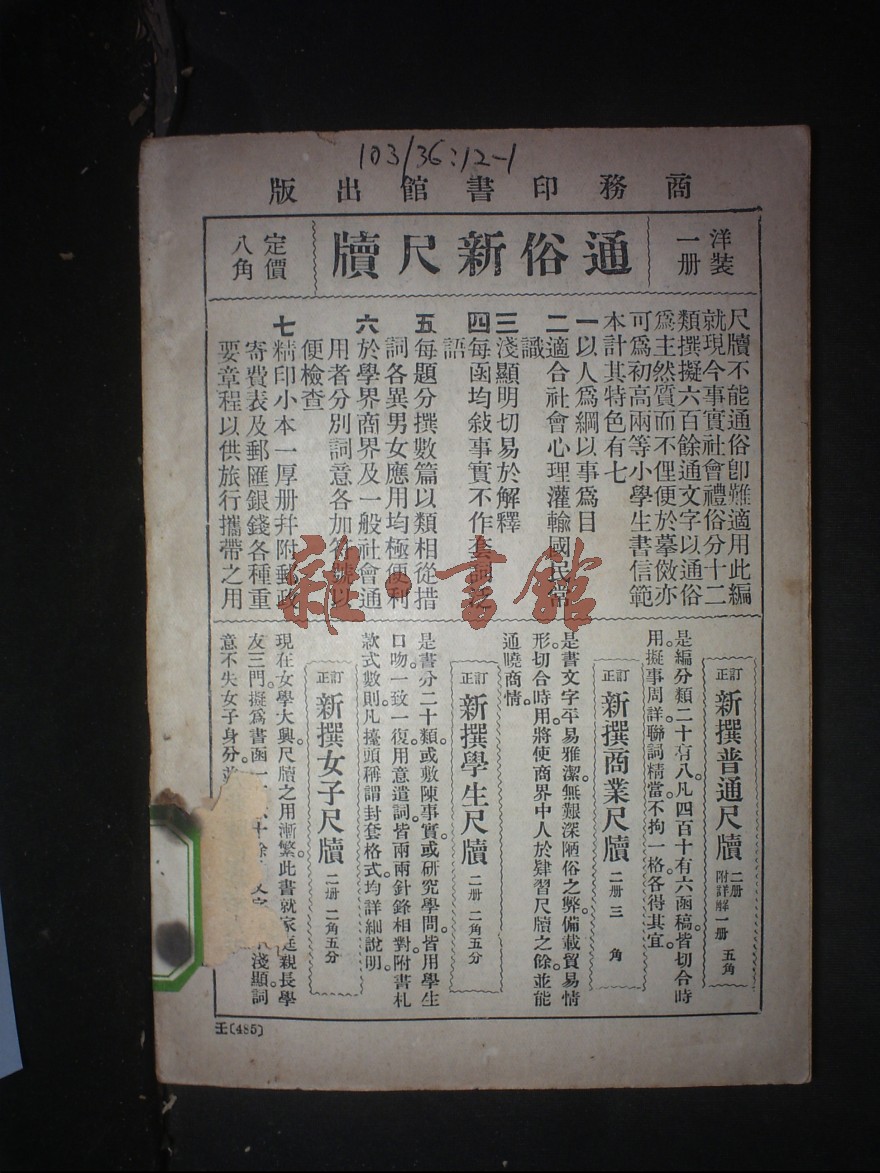 103/36:12-1
商務印書館出版
洋裝一册
通俗新尺牘
定價八角
尺牘不能通俗卽難適用此編
就現今事實社會禮俗分十二
類撰擬六百餘通文字以通俗
爲主然質而不俚便於摹倣亦
可爲初高兩等小學生書信範
本計其特色有七
一以人爲綱以事爲目
二適合社會心理灌輸國民常
識
三淺顯明切易於解釋
四每函均敍事實不作套詞
語
五每題分撰數篇以類相從措
詞各異男女應用均極便利
六於學界商界及一般社會通
用者分別詞意各加符號以
便檢查
七精印小本一厚册幷附郵政
寄費表及郵匯銀錢各種重
要章程以供旅行攜帶之用
訂正 新撰普通尺牘 二册 附詳解一册 五角
是編分類二十有八。凡四百十有六函稿。皆切合時
用。擬事周詳。聯詞精當。不拘一格。各得其宜。
訂正 新撰商業尺牘 二册 三角
是書文字平易雅潔。無艱深陋俗之弊。備載貿易情
形。切合時用。將使商界中人於肄習尺牘之餘。並能
通曉商情。
訂正 新撰學生尺牘 二册 二角五分
是書分二十類。或敷陳事實。或研究學問。皆用學生
口吻。一致一復。用意遣詞。皆兩兩針鋒相對。附書札
款式數則。凡擡頭稱謂封套格式。均詳細說明。
訂正 新撰女子尺牘 二册 二角五分
現在女學大興。尺牘之用漸繁。此書就家庭親長學
友三門。擬爲書函一十餘淺顯。詞
意不失女子身分。
王〔485〕
雜·書館